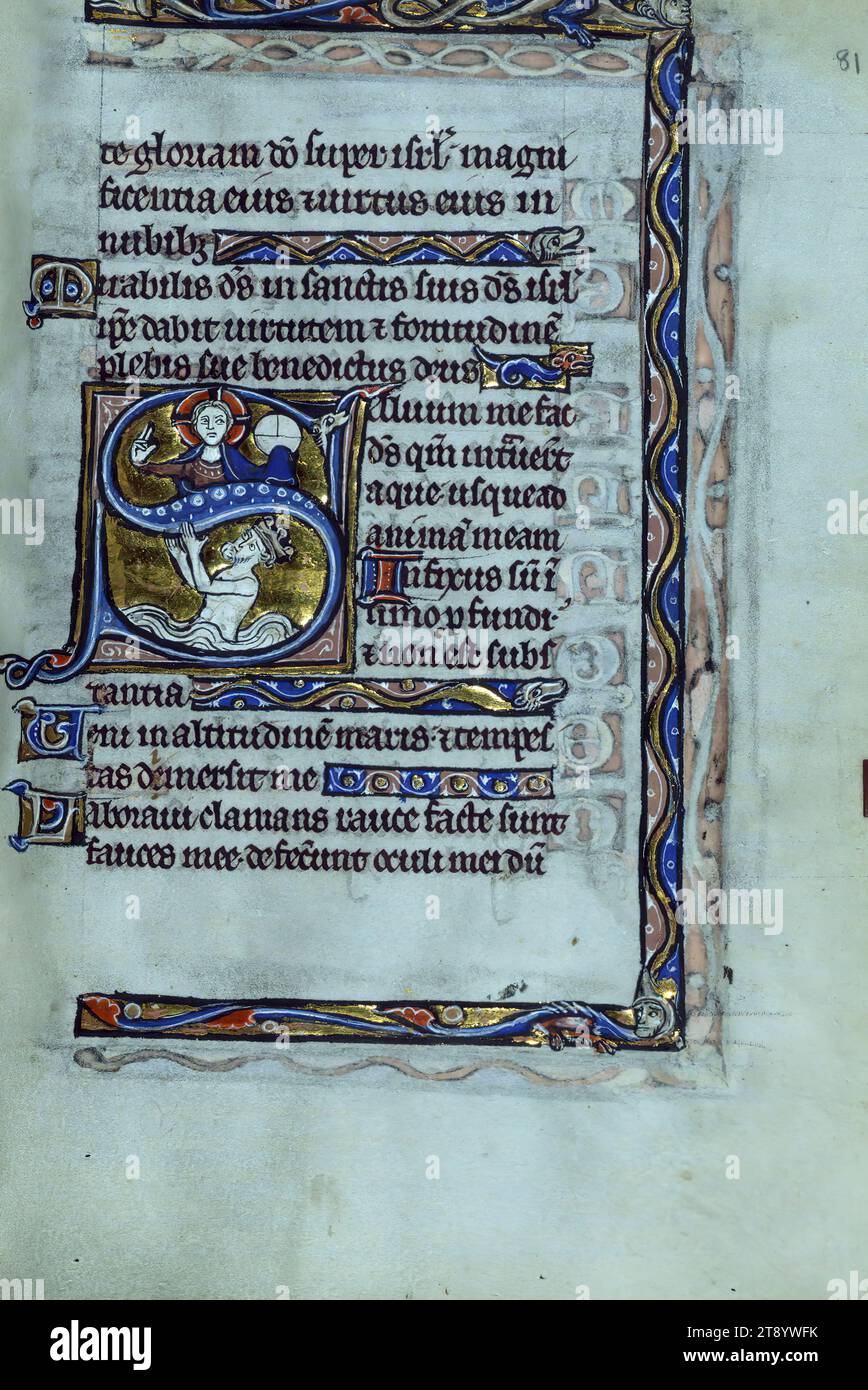 81
te gloriam dō super isrl̄· magni
ficentia eius ⁊ uirtus eius in
nubibꝫ
Mirabilis dꝰs in sanctis suis dꝰs isrl̄
ip̄e dabit uirtutem ⁊ fortitudinē
plebis sue benedictus deus
Saluum me fac
dꝰs qm̄ intͣuert̄
aque usque ad
animā meam
Infixus sū ī
limo ꝓfundi·
⁊ non est subs
tantia
Ueni in altitudinē maris· ⁊ tempes
tas demersit me
Laboraui clamans rauce facte sunt
fauces mee· defecer̄unt oculi mei dū
alamy
Image ID: 2T8YWFK
www.alamy.com